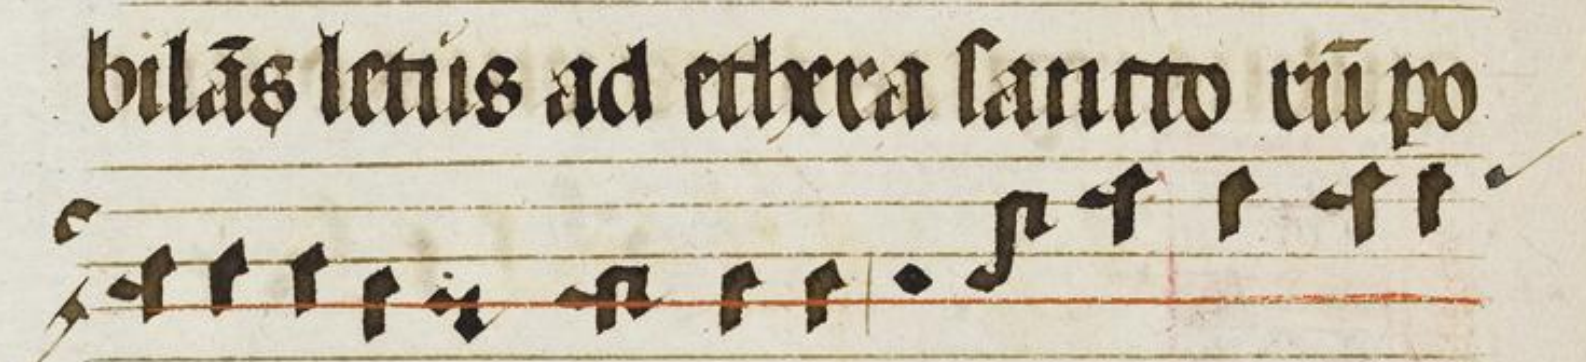 bilãs letus ad ethera sancto rũ po